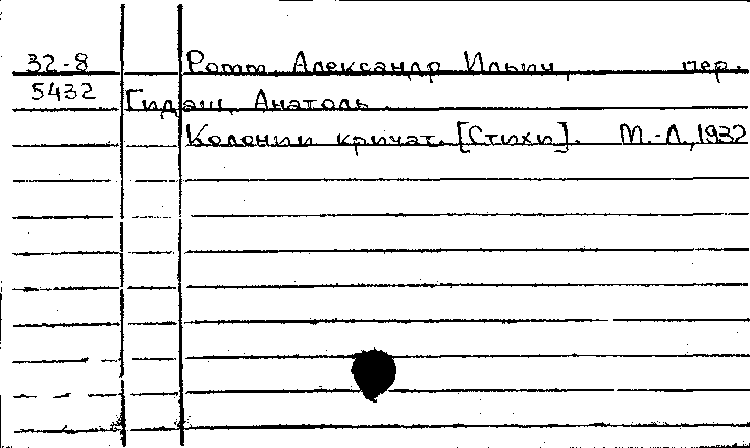 32-8 Ромм, Александр Ильич, пер.
5432 Гидаш, Анатоль.
Колонии кричат. [Стихи]. М.-Л., 1932